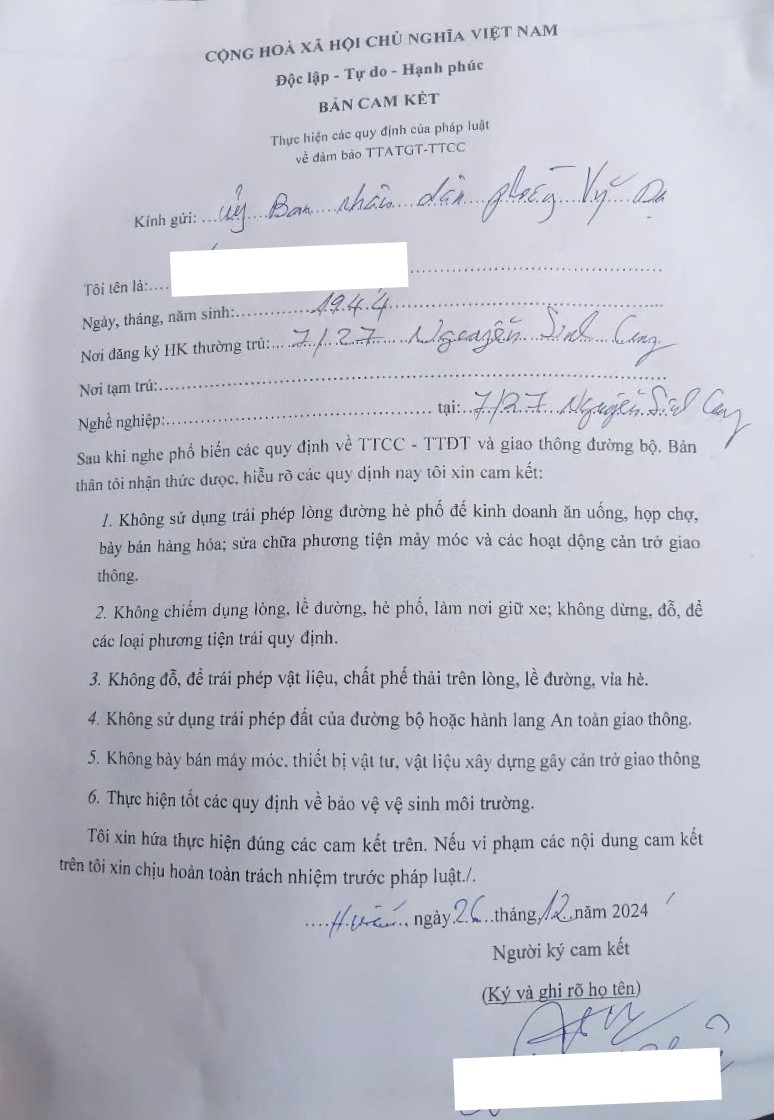 CỘNG HOÀ XÃ HỘI CHỦ NGHĨA VIỆT NAM
Độc lập - Tự do - Hạnh phúc
BẢN CAM KẾT
Thực hiện các quy định của pháp luật
về đảm bảo TTATGT-TTCC
Kính gửi: ...Uỷ...Ban...nhân...dân...phường...Vỹ...Dạ
Tôi tên là:....
Ngày, tháng, năm sinh:............1944
Nơi đăng ký HK thường trú:...7/27...Nguyễn Sinh Cung
Nơi tạm trú:
Nghề nghiệp:................ tại:..7/27 Nguyễn Sinh Cung
Sau khi nghe phổ biến các quy định về TTCC - TTĐT và giao thông đường bộ. Bản
thân tôi nhận thức được, hiểu rõ các quy định nay tôi xin cam kết:
1. Không sử dụng trái phép lòng đường hè phố để kinh doanh ăn uống, họp chợ,
bày bán hàng hóa; sửa chữa phương tiện máy móc và các hoạt động cản trở giao
thông.
2. Không chiếm dụng lòng, lề đường, hè phố, làm nơi giữ xe; không dừng, đỗ, để
các loại phương tiện trái quy định.
3. Không đỗ, để trái phép vật liệu, chất phế thải trên lòng, lề đường, vỉa hè.
4. Không sử dụng trái phép đất của đường bộ hoặc hành lang An toàn giao thông.
5. Không bày bán máy móc, thiết bị vật tư, vật liệu xây dựng gây cản trở giao thông
6. Thực hiện tốt các quy định về bảo vệ vệ sinh môi trường.
Tôi xin hứa thực hiện đúng các cam kết trên. Nếu vi phạm các nội dung cam kết
trên tôi xin chịu hoàn toàn trách nhiệm trước pháp luật./.
ngày 26 tháng 12 năm 2024
Người ký cam kết
(Ký và ghi rõ họ tên)